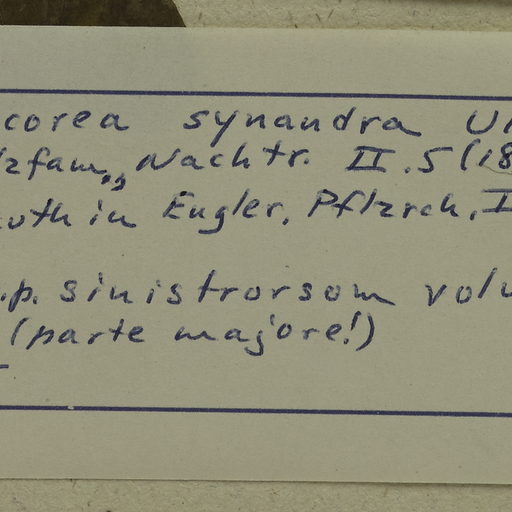 corea synandra U
zfam., Nachtr. II. 5 (18
uth in Engler, Pflzrch, I
.p. sinistrorsom volu
(parte majore!)